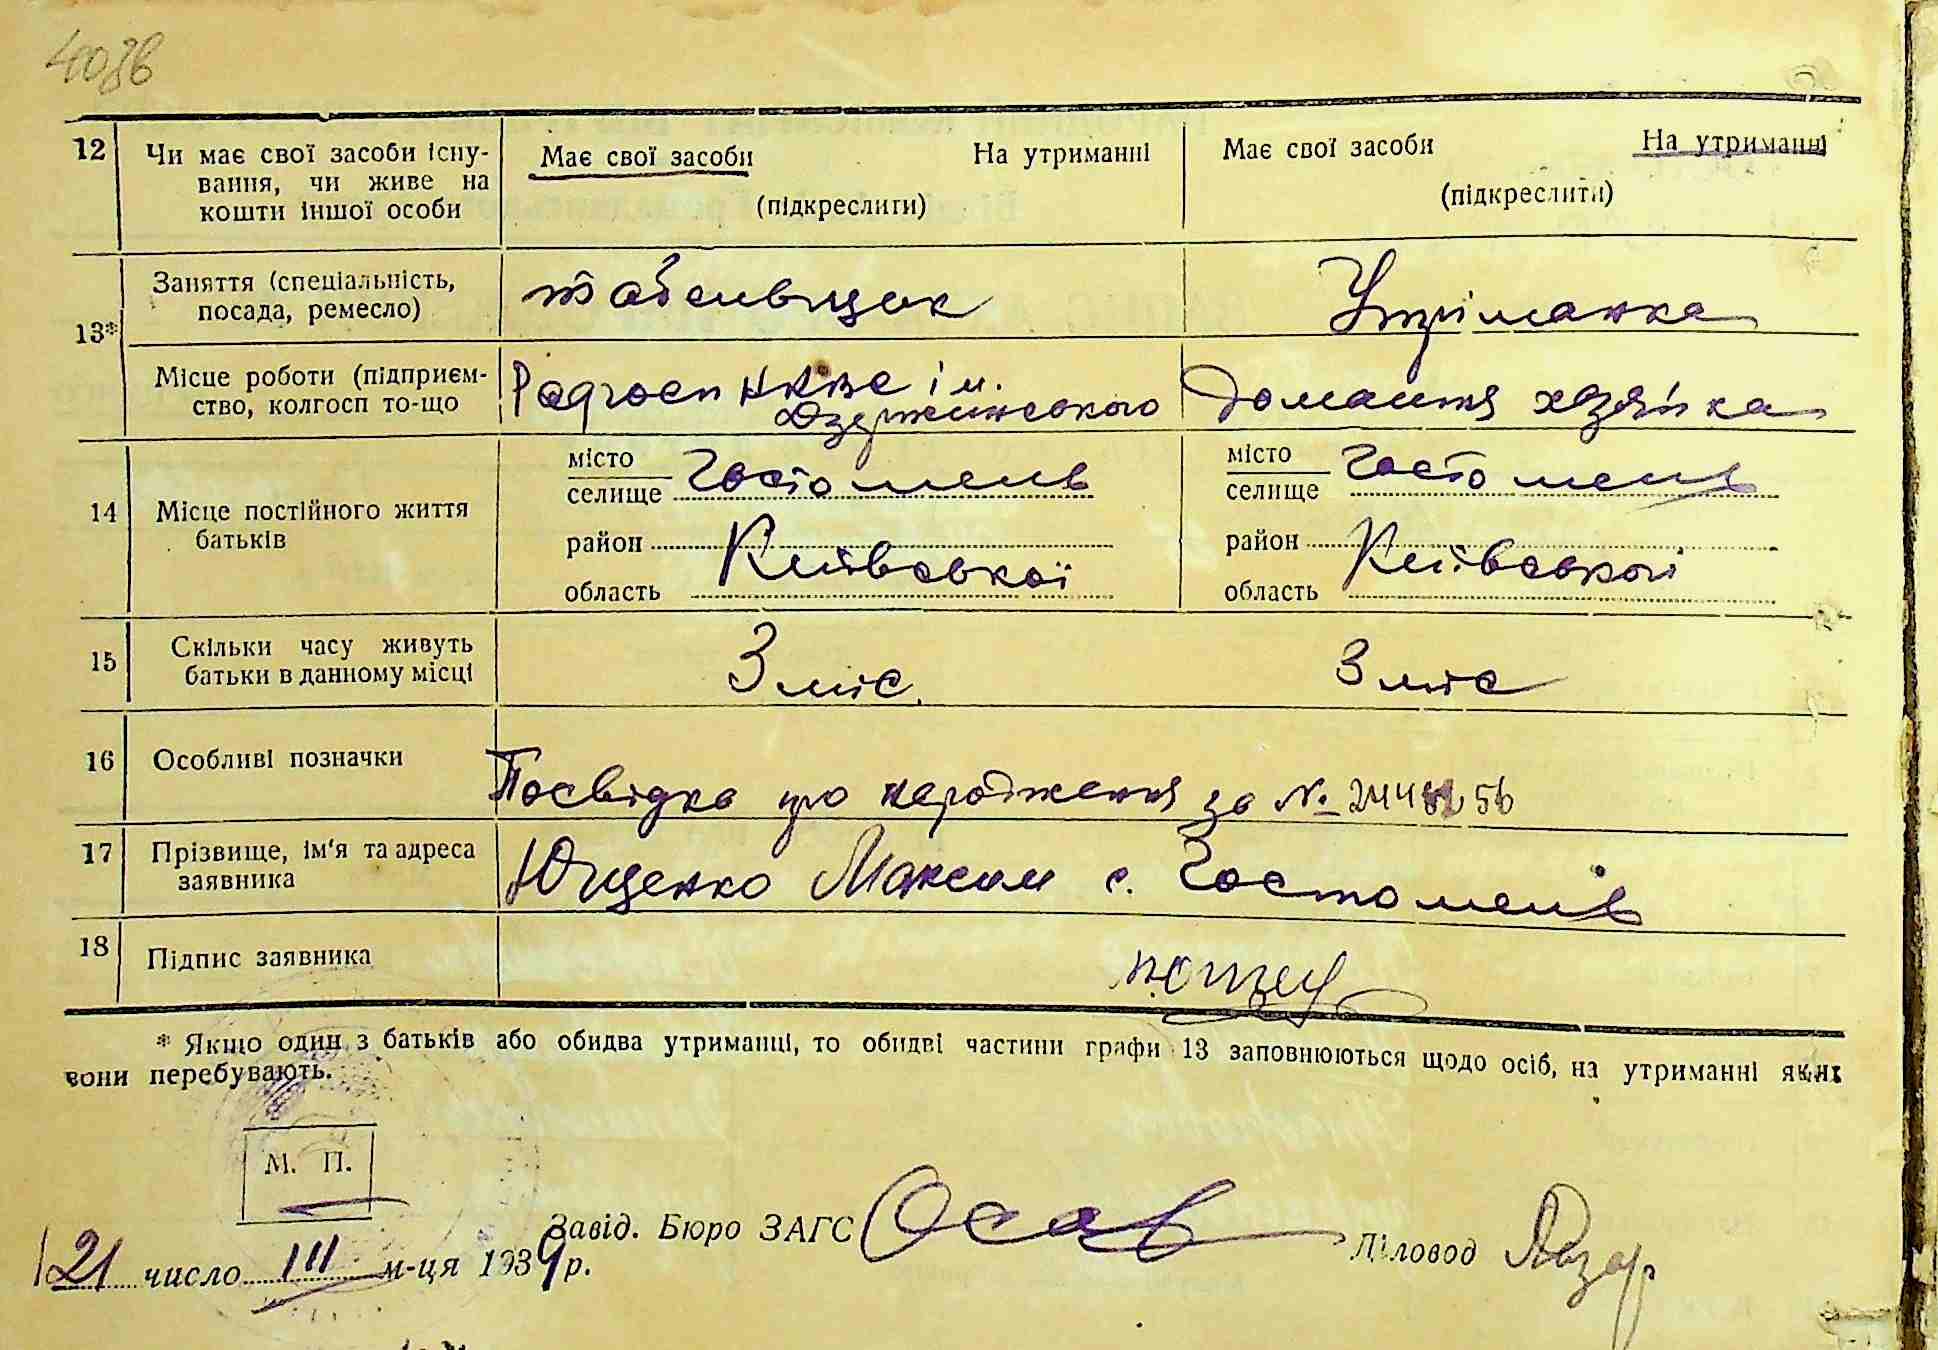 4086
12 Чи має свої засоби існу- Має свої засоби На утриманні Має свої засоби На утриманні
вання, чи живе на
кошти іншої особи (підкреслити) (підкреслити)
13* Заняття (спеціальність, табельщик Утріманка
посада, ремесло)
Місце роботи (підприєм- Радгосп НКВС ім. Домашня хазяйка
ство, колгосп то-що Дзержинського
14 Місце постійного життя місто Гостомель місто Гостомель
батьків селище селище
район район
область Київської область Київської
15 Скільки часу живуть 3 міс. 3 міс
батьки в данному місці
16 Особливі позначки Посвідка про народження за №
17 Прізвище, ім'я та адреса Ющенко Максим с. Гостомель
заявника
18 Підпис заявника
* Якщо один з батьків або обидва утриманці, то обидві частини графи 13 заповнюються щодо осіб, на утриманні яких
вони перебувають.
М. П.
Завід. Бюро ЗАГС Діловод
21 число III м-ця 1939 р.